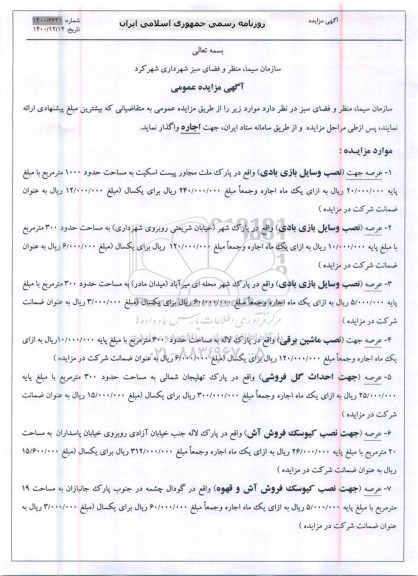 آگهی مزایده
روزنامه رسمی جمهوری اسلامی ایران
شماره: ۱۴۰۰/۶۶۲۱
تاریخ: ۱۴۰۰/۱۲/۱۴
بسمه تعالی
سازمان سیما، منظر و فضای سبز شهرداری شهرکرد
آگهی مزایده عمومی
سازمان سیما، منظر و فضای سبز در نظر دارد موارد زیر را از طریق مزایده عمومی به متقاضیانی که بیشترین مبلغ پیشنهادی ارائه
نمایند، پس ازطی مراحل مزایده و از طریق سامانه ستاد ایران، جهت اجاره واگذار نماید.
موارد مزایـده :
۱- عرصه جهت (نصب وسایل بازی بادی) واقع در پارک ملت مجاور پیست اسکیت به مساحت حدود ۱۰۰۰ مترمربع با مبلغ
پایه ۲۰/۰۰۰/۰۰۰ ریال به ازای یک ماه اجاره وجمعاً مبلغ ۲۴۰/۰۰۰/۰۰۰ ریال برای یکسال (مبلغ ۱۲/۰۰۰/۰۰۰ ریال به عنوان
ضمانت شرکت در مزایده )
۲- عرصه (نصب وسایل بازی بادی) واقع در پارک شهر (خیابان شریعتی روبروی شهرداری) به مساحت حدود ۳۰۰ مترمربع
با مبلغ پایه ۱۰/۰۰۰/۰۰۰ ریال به ازای یک ماه اجاره وجمعاً مبلغ ۱۲۰/۰۰۰/۰۰۰ ریال برای یکسال (مبلغ ۶/۰۰۰/۰۰۰ ریال به عنوان
ضمانت شرکت در مزایده )
۳- عرصه (نصب وسایل بازی بادی) واقع در پارک شهر محله ای میرآباد (میدان مادر) به مساحت حدود ۳۰۰ مترمربع با مبلغ
پایه ۵/۰۰۰/۰۰۰ ریال به ازای یک ماه اجاره وجمعاً مبلغ ۶۰/۰۰۰/۰۰۰ ریال برای یکسال (مبلغ ۳/۰۰۰/۰۰۰ ریال به عنوان ضمانت
شرکت در مزایده )
۴- عرصه جهت (نصب ماشین برقی) واقع در پارک لاله به مساحت حدود ۴۰۰ مترمربع با مبلغ پایه ۱۰/۰۰۰/۰۰۰ریال به ازای
یک ماه اجاره وجمعاً مبلغ ۱۲۰/۰۰۰/۰۰۰ ریال برای یکسال (مبلغ ۶/۰۰۰/۰۰۰ ریال به عنوان ضمانت شرکت در مزایده )
۵- عرصه (جهت احداث گل فروشی) واقع در پارک تهلیجان شمالی به مساحت حدود ۳۰۰ مترمربع با مبلغ پایه
۲۵/۰۰۰/۰۰۰ ریال به ازای یک ماه اجاره وجمعاً مبلغ ۳۰۰/۰۰۰/۰۰۰ ریال برای یکسال (مبلغ ۱۵/۰۰۰/۰۰۰ ریال به عنوان ضمانت
شرکت در مزایده )
۶- عرصه (جهت نصب کیوسک فروش آش) واقع در پارک لاله جنب خیابان آزادی روبروی خیابان پاسداران به مساحت
۲۰ مترمربع با مبلغ پایه ۲۶/۰۰۰/۰۰۰ ریال به ازای یک ماه اجاره وجمعاً مبلغ ۳۱۲/۰۰۰/۰۰۰ ریال برای یکسال (مبلغ ۱۵/۶۰۰/۰۰۰
ریال به عنوان ضمانت شرکت در مزایده )
۷- عرصه (جهت نصب کیوسک فروش آش و قهوه) واقع در گودال چشمه در جنوب پارک جانبازان به مساحت ۱۹
مترمربع با مبلغ پایه ۵/۰۰۰/۰۰۰ ریال به ازای یک ماه اجاره وجمعاً مبلغ ۶۰/۰۰۰/۰۰۰ ریال برای یکسال (مبلغ ۳/۰۰۰/۰۰۰ ریال به
عنوان ضمانت شرکت در مزایده )